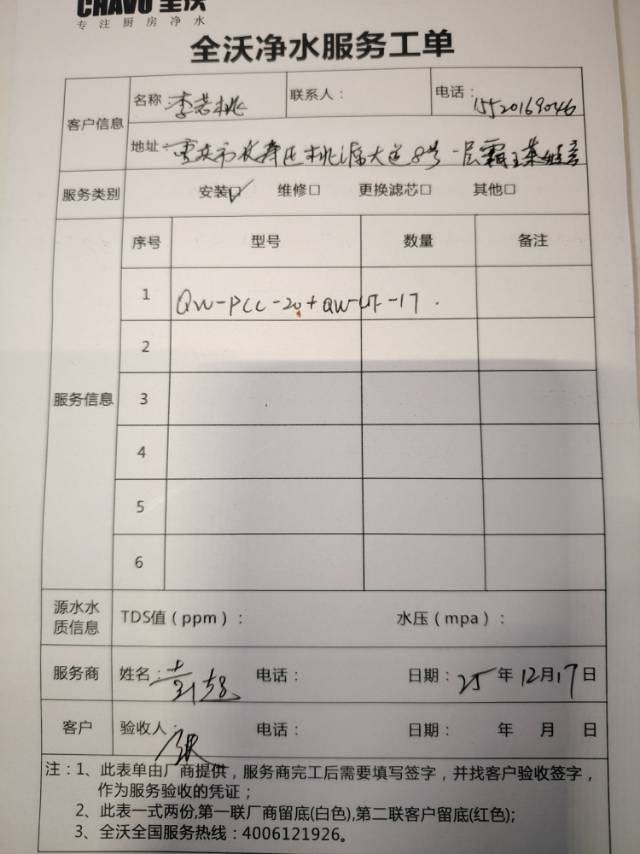 CHAVO 全沃
专注厨房净水
全沃净水服务工单
客户信息
名称 李若桃
联系人：
电话： 15520169046
地址 重庆市长寿区桃源大道8号一层霸王茶姬
服务类别
安装☑ 维修□ 更换滤芯□ 其他□
服务信息
序号 型号 数量 备注
1 QW-PCC-20+QW-UF-17.
2
3
4
5
6
源水水质信息
TDS值（ppm）： 水压（mpa）：
服务商 姓名： 电话： 日期：25年12月17日
客户 验收人： 电话： 日期： 年 月 日
注：1、此表单由厂商提供，服务商完工后需要填写签字，并找客户验收签字，
作为服务验收的凭证；
2、此表一式两份,第一联厂商留底(白色),第二联客户留底(红色);
3、全沃全国服务热线：4006121926。